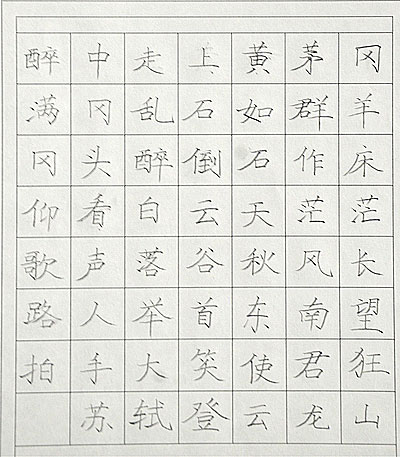 醉中走上黄茅冈
满冈乱石如群羊
冈头醉倒石作床
仰看白云天茫茫
歌声落谷秋风长
路人举首东南望
拍手大笑使君狂
苏轼登云龙山